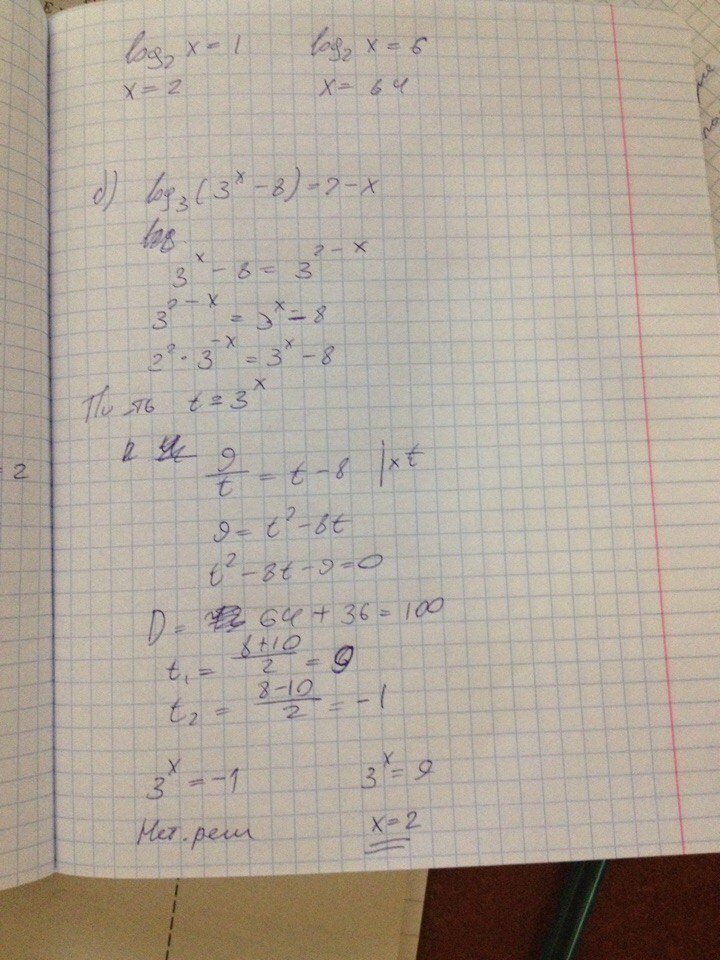 log₂ x = 1 log₂ x = 6
x = 2 x = 64
б) log₃(3^x - 8) = 2 - x
log
3^x - 8 = 3^(2 - x)
3^(2 - x) = 3^x - 8
2² · 3^(-x) = 3^x - 8
t = 3^x
9/t = t - 8 | × t
9 = t² - 8t
t² - 8t - 9 = 0
D = 64 + 36 = 100
t₁ = (8+10)/2 = 9
t₂ = (8-10)/2 = -1
3^x = -1 3^x = 9
Нет. реш x = 2
= 2